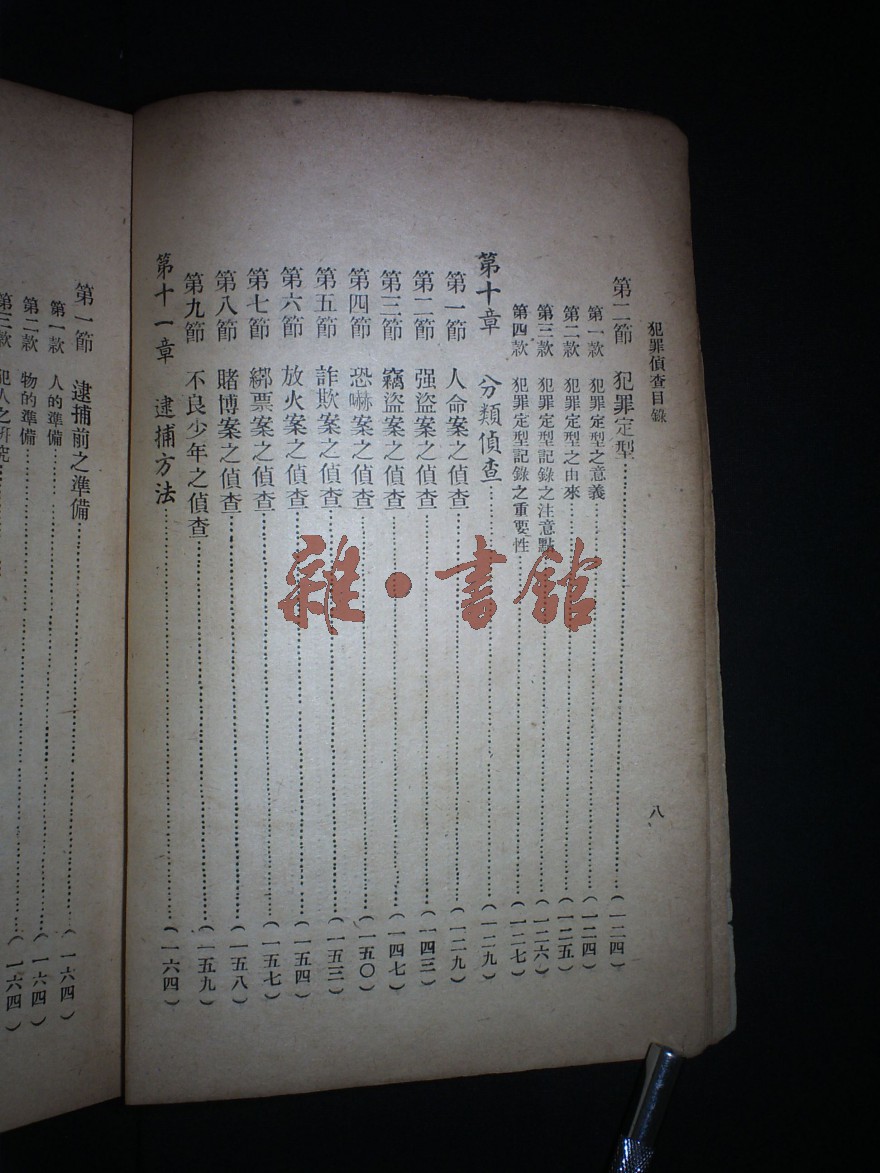 犯罪偵查目錄
八
第二節 犯罪定型……(一二四)
第一款 犯罪定型之意義……(一二四)
第二款 犯罪定型之由來……(一二五)
第三款 犯罪定型記錄之注意點……(一二六)
第四款 犯罪定型記錄之重要性……(一二七)
第十章 分類偵查……(一二九)
第一節 人命案之偵查……(一二九)
第二節 强盜案之偵查……(一四三)
第三節 竊盜案之偵查……(一四七)
第四節 恐嚇案之偵查……(一五〇)
第五節 詐欺案之偵查……(一五三)
第六節 放火案之偵查……(一五四)
第七節 綁票案之偵查……(一五七)
第八節 賭博案之偵查……(一五八)
第九節 不良少年之偵查……(一五九)
第十一章 逮捕方法……(一六四)
第一節 逮捕前之準備……(一六四)
第一款 人的準備……(一六四)
第二款 物的準備……(一六四)
第三款 犯人之研究……
雜·書館